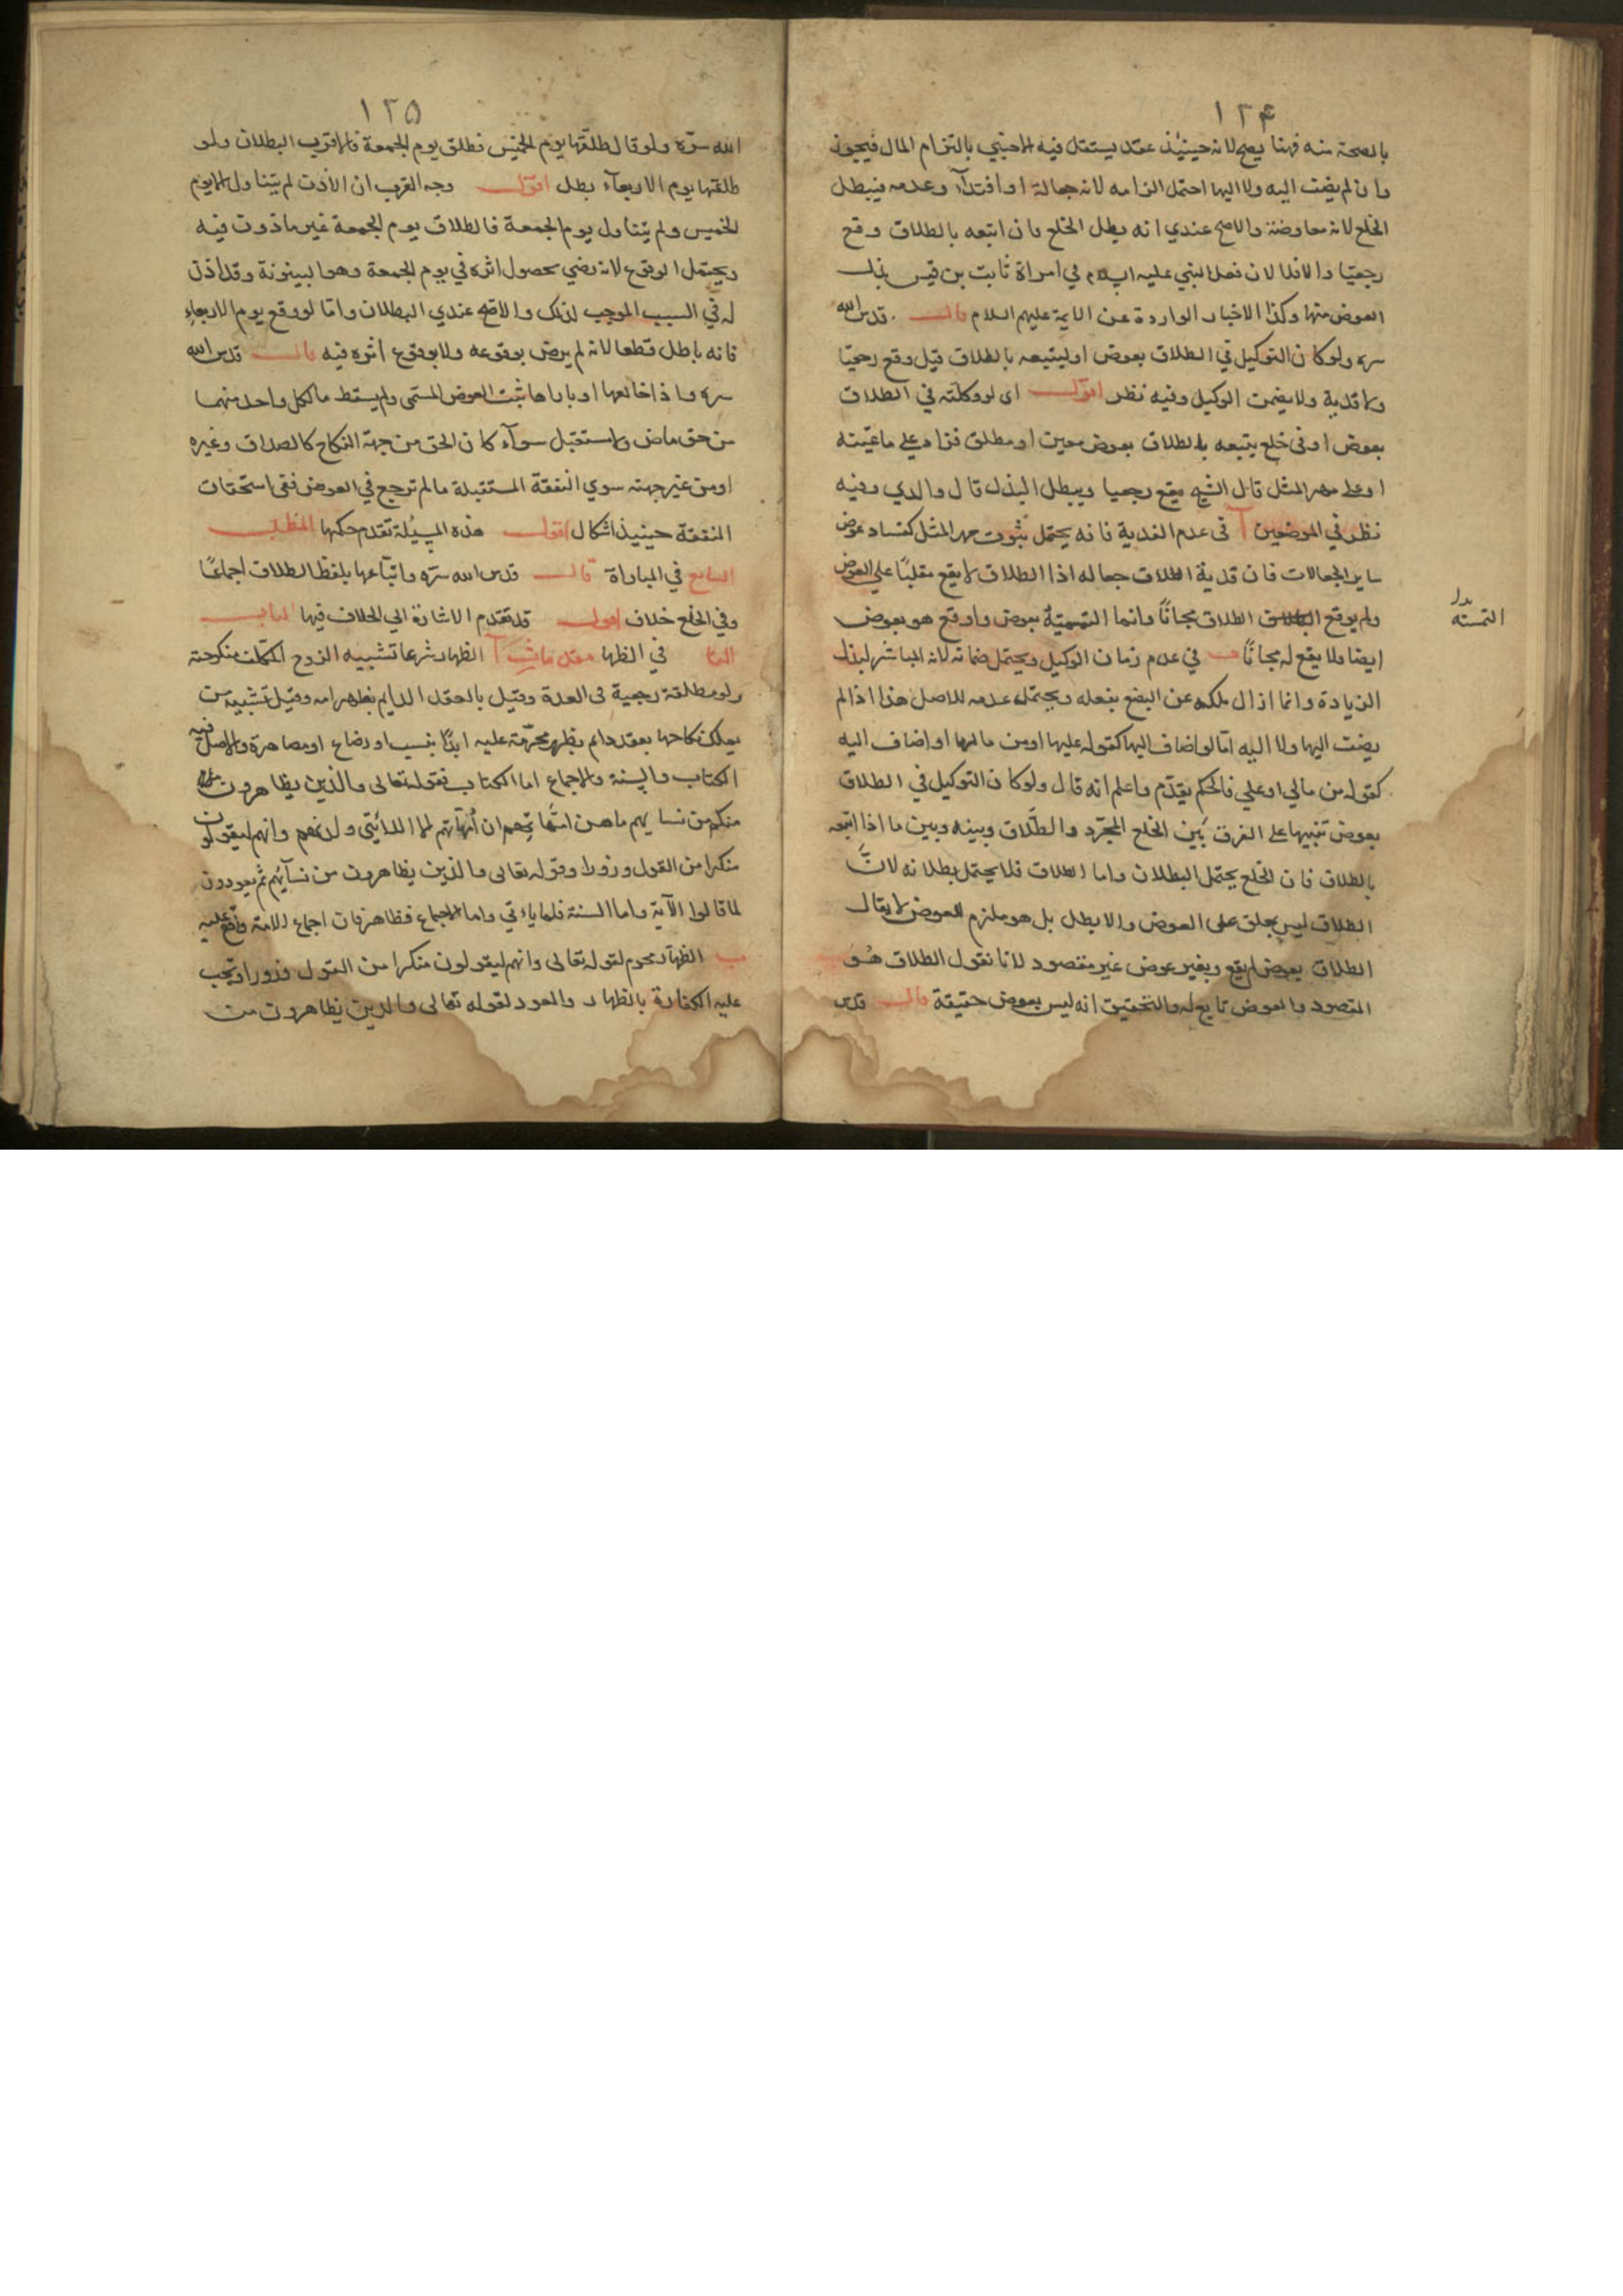 ١٢۴
بالصحة منه فهنا يصح لانه حينئذ عقد يستقل فيه الاجنبي بالتزام المال فيجوز
وان لم يضف اليه ولا اليها احتمل الزامه لانه جعالة او افتداء وعدمه فيبطل
الخلع لانه معاوضة والاصح عندي انه يبطل الخلع فان اتبعه بالطلاق وقع
رجعيا والا فلا لان فعل النبي عليه السلام في امراة ثابت بن قيس بذل
العوض منها وكذا الاخبار الواردة عن الايمة عليهم السلام قال قدس الله
سره ولو كان التوكيل في الطلاق بعوض او ليتبعه بالطلاق قيل وقع رجعيا
ولا فدية ولا يضمن الوكيل وفيه نظر اقول اى لو وكلته في الطلاق
بعوض او فى خلع يتبعه بالطلاق بعوض معين او مطلق فزاد على ما عينته
او على مهر المثل قال الشيخ يقع رجعيا ويبطل البذل قال والدي وفيه
نظر في الموضعين آ فى عدم الفدية فانه يحتمل ثبوت مهر المثل كفساد عوض
ساير الجعالات فان فدية الطلاق جعاله اذا الطلاق لا يقع معلقا على العوض
ولم يوقع الطلاق الطلاق مجانا وانما التسمية بعوض واوقع هو بعوض
بدل
التمسته
ايضا ولا يقع له مجانا ب في عدم ضمان الوكيل ويحتمل ضمانه لانه المباشر لبذل
الزيادة وانما ازال ملكه عن البضع بفعله ويحتمل عدمه للاصل هذا اذا لم
يضف اليها ولا اليه اما لو اضاف اليها كقوله عليها او من مالها او اضاف اليه
كقوله من مالي او علي فالحكم يقدم واعلم انه قال ولو كان التوكيل في الطلاق
بعوض تنبيها على الفرق بين الخلع المجرد والطلاق وبينه وبين ما اذا اتبعه
بالطلاق فان الخلع يحتمل البطلان واما الطلاق فلا يحتمل بطلانه لان
الطلاق ليس يعلق على العوض والا بطل بل هو ملزم للعوض لا يقال
الطلاق بعوض لم يقع وبغير عوض غير مقصود لانا نقول الطلاق هو
المقصود والعوض تابع له والتحقيق انه ليس بعوض حقيقة قال قدس
١٢۵
الله سره ولو قال طلقها يوم الخميس فطلق يوم الجمعة فالاقرب البطلان ولو
طلقها يوم الاربعاء بطل اقول وجه القرب ان الاذن لم يتناول الا يوم
الخميس ولم يتناول يوم الجمعة فالطلاق يوم الجمعة غير ماذون فيه
ويحتمل الوقوع لانه رضي بحصول اثره في يوم الجمعة وهو البينونة وقد اذن
له في السبب الموجب لذلك والاصح عندي البطلان واما لو وقع يوم الاربعاء
فانه باطل قطعا لانه لم يرض بوقوعه ولا بوقوع اثره فيه قال قدس الله
سره واذا خالعها او باراها ثبت العوض المسمى ولم يسقط ما لكل واحد منهما
من حق ماض ولا مستقبل سواء كان الحق من جهة النكاح كالصداق وغيره
او من غير جهته سوي النفقة المستقبلة ما لم ترجع في العوض ففى استحقاق
النفقة حينيذ اشكال اقول هذه المسئلة تقدم حكمها المطلب
السابع في المباراة قال قدس الله سره واتباعها بلفظ الطلاق اجماعا
وفي الخلع خلاف اقول قد تقدم الاشارة الي الخلاف فيها الباب
الثا في الظها مقدمات آ الظهار شرعا تشبيه الزوج المكلف منكوحته
ولو مطلقة رجعية فى العدة وقيل بالعقد الدايم بظهر امه وقيل تشبيه من
يملك نكاحها بعقد دايم بظهر محرمة عليه ابدا بنسب او رضاع او مصاهرة والاصل فيه
الكتاب والسنة والاجماع اما الكتاب فقوله تعالى والذين يظاهرون
منكم من نسايهم ما هن امهاتهم ان امهاتهم الا اللائي ولدنهم وانهم ليقولون
منكرا من القول وزورا وقوله تعالى والذين يظاهرون من نسآئهم ثم يعودون
لما قالوا الآية واما السنة فلما ياءتي واما الاجماع فظاهر فان اجماع الامة واقع عليه
ب الظهار محرم لقوله تعالى وانهم ليقولون منكرا من القول وزورا وتجب
عليه الكفارة بالظهار والعود لقوله تعالى والذين يظاهرون من